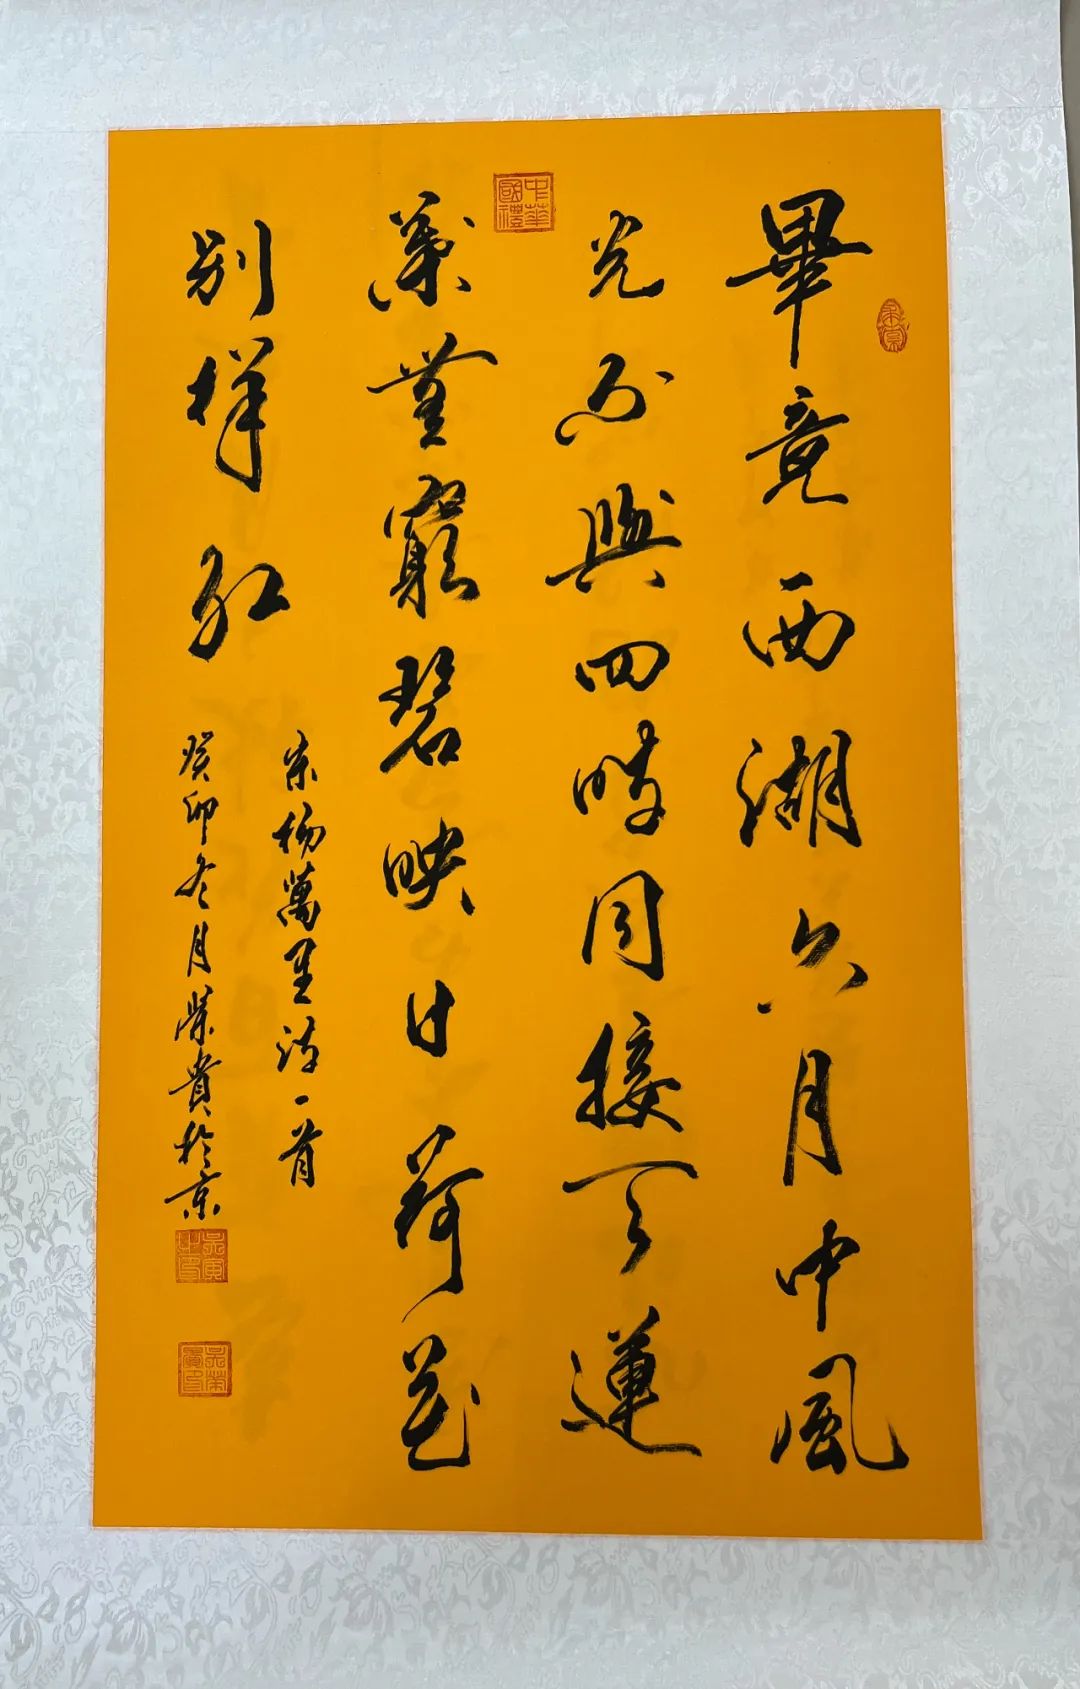 畢竟西湖六月中風
光不與四時同接天蓮
葉無窮碧映日荷花
別樣紅
宋楊萬里詩一首
癸卯冬月榮貴於京
中華國禮